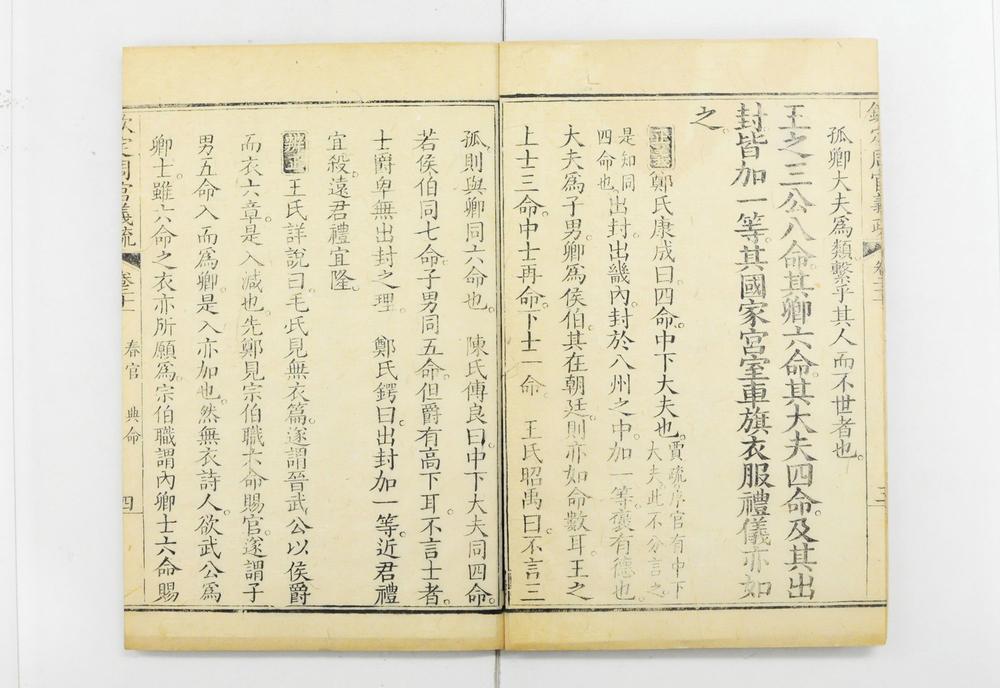 欽定周官義疏 卷二十一 三
孤卿大夫爲類繫乎其人而不世者也。
王之三公八命。其卿六命。其大夫四命。及其出
封皆加一等。其國家宮室車旗衣服禮儀亦如
之。
正義鄭氏康成曰四命。中下大夫也。賈疏序官有中下大夫此不分言之
是知同四命也。出封出畿內。封於八州之中。加一等。襃有德也。
大夫爲子男。卿爲侯伯其在朝廷。則亦如命數耳。王之
上士三命。中士再命。下士一命。 王氏昭禹曰。不言三
孤則與卿同六命也。 陳氏傅良曰。中下大夫同四命。
若侯伯同七命。子男同五命。但爵有高下耳。不言士者。
士爵卑無出封之理。 鄭氏鍔曰。出封加一等。近君禮
宜殺。遠君禮宜隆。
辨正王氏詳說曰。毛氏見無衣篇。遂謂晉武公以侯爵
而衣六章。是入減也。先鄭見宗伯職六命賜官。遂謂子
男五命。入而爲卿。是入亦加也。然無衣詩人。欲武公爲
卿士。雖六命之衣亦所願爲。宗伯職謂內卿士六命賜
欽定周官義疏 卷二十一 春官 典命 四